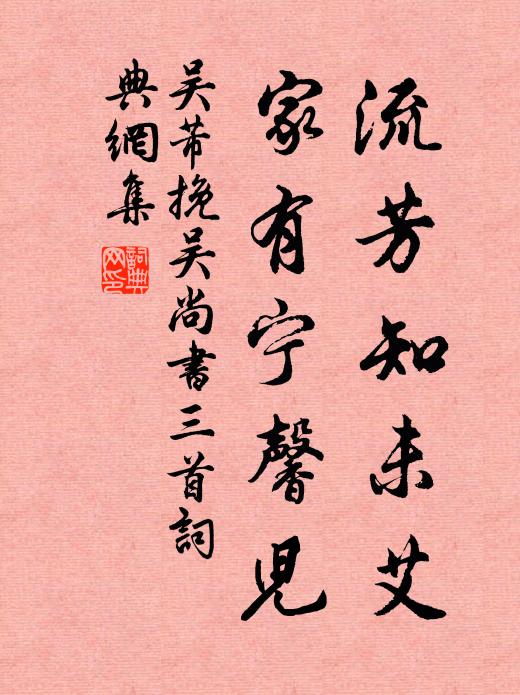 流芳知未艾
家有宁馨児
吴芾挽吴尚書三首詞
典網集
詞典网印